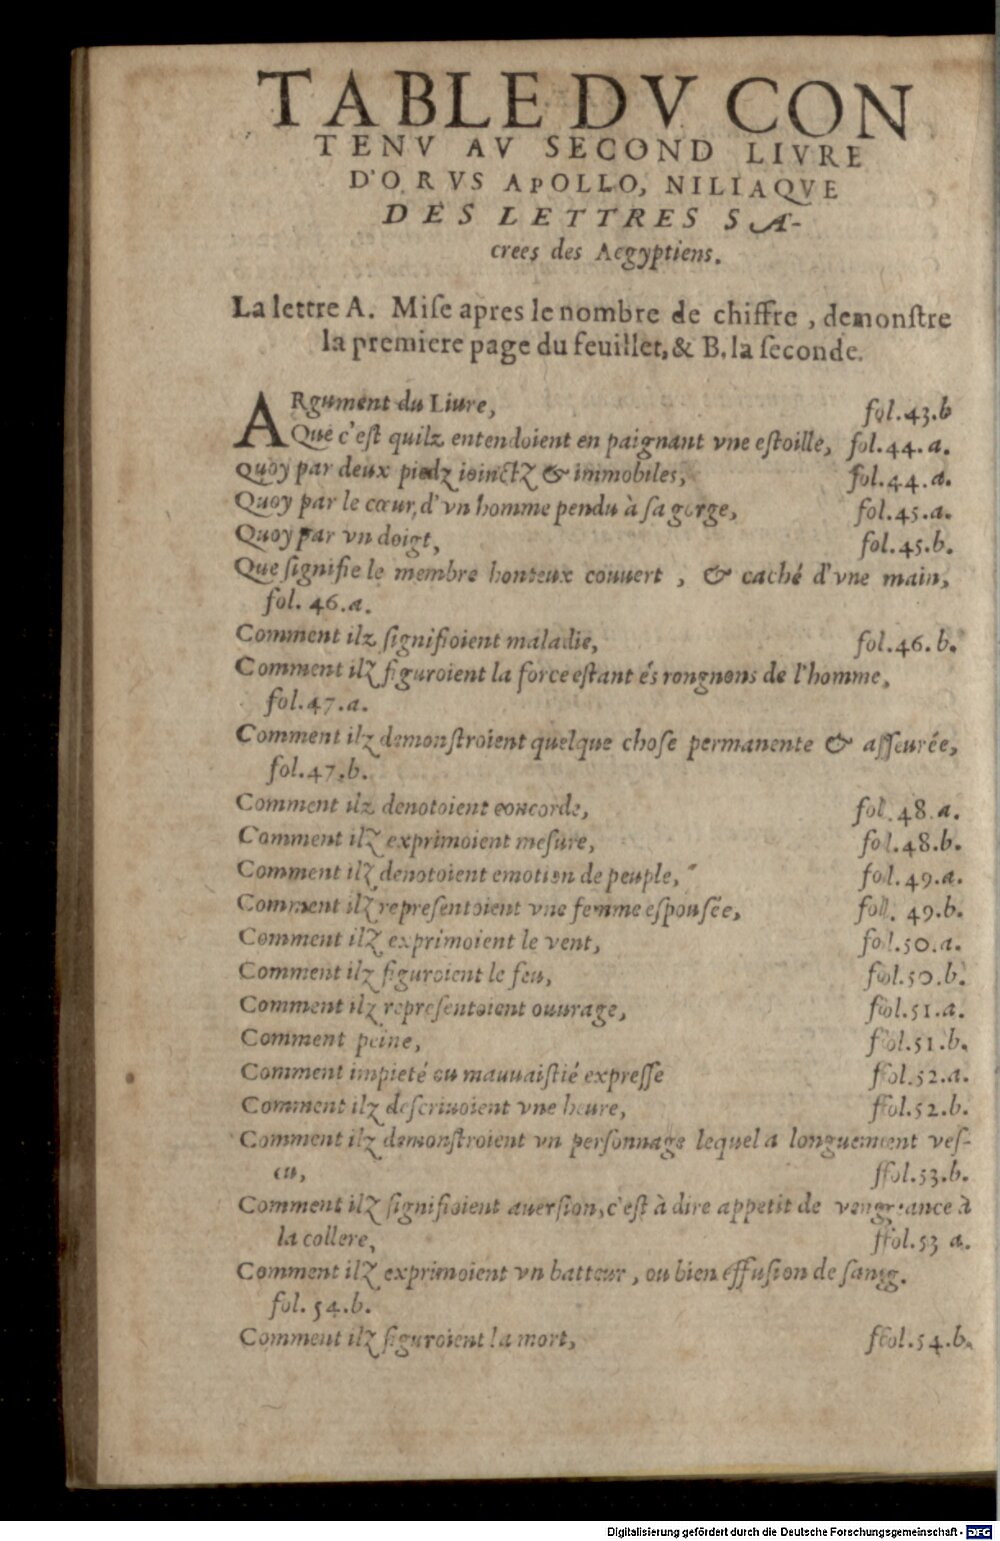 TABLE DV CON
TENV AV SECOND LIVRE
D'ORVS APOLLO, NILIAQVE
DES LETTRES SA-
crees des Aegyptiens.
La lettre A. Miſe apres le nombre de chiffre, demonſtre
la premiere page du feuillet, & B, la ſeconde.
ARgument du Liure, fol.43.b
Que c'eſt quilz entendoient en paignant vne eſtoille, fol.44.a.
Quoy par deux piedz ioinctz & immobiles, fol.44.a.
Quoy par le cœur, d'vn homme pendu à ſa gorge, fol.45.a.
Quoy par vn doigt, fol.45.b.
Que ſignifie le membre honteux couuert, & caché d'vne main,
fol. 46.a.
Comment ilz ſignifioient maladie, fol.46.b.
Comment ilz figuroient la force eſtant és rongnons de l'homme,
fol.47.a.
Comment ilz demonſtroient quelque choſe permanente & aſſeurée,
fol.47.b.
Comment ilz denotoient concorde, fol.48.a.
Comment ilz exprimoient meſure, fol.48.b.
Comment ilz denotoient emotion de peuple, fol.49.a.
Comment ilz repreſentoient vne femme eſpouſée, fol. 49.b.
Comment ilz exprimoient le vent, fol.50.a.
Comment ilz figuroient le feu, fol.50.b.
Comment ilz repreſentoient ouurage, fol.51.a.
Comment peine, fol.51.b.
Comment impieté ou mauuaiſtié expreſſe fol.52.a.
Comment ilz deſcriuoient vne heure, fol.52.b.
Comment ilz demonſtroient vn perſonnage lequel a longuement veſ-
cu, fol.53.b.
Comment ilz ſignifioient auerſion, c'eſt à dire appetit de vengeance à
la collere, fol.53 a.
Comment ilz exprimoient vn batteur, ou bien effuſion de ſang.
fol. 54.b.
Comment ilz figuroient la mort, fol.54.b.
Digitalisierung gefördert durch die Deutsche Forschungsgemeinschaft - DFG